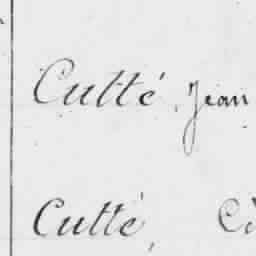 Cutté, Jean
Cutté,